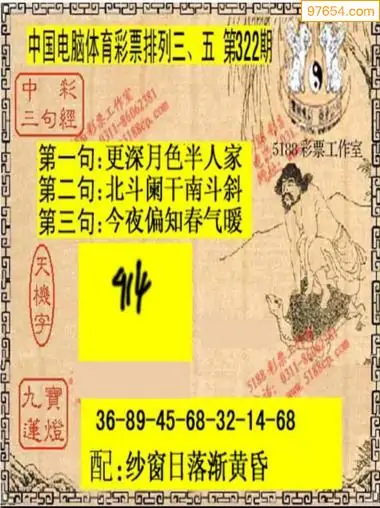 97654.com
中国电脑体育彩票排列三、五 第322期
中彩
三句經
5188彩票工作室
0311-86062381
5188cp.com
5188彩票工作室
第一句:更深月色半人家
第二句:北斗阑干南斗斜
第三句:今夜偏知春气暖
天機字
914
九寶
蓮燈
36-89-45-68-32-14-68
配:纱窗日落渐黄昏